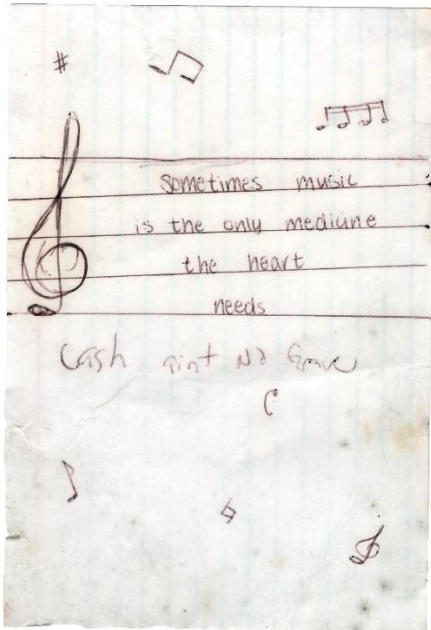 sometimes music
is the only medicine
the heart
needs
Cash aint No Grave